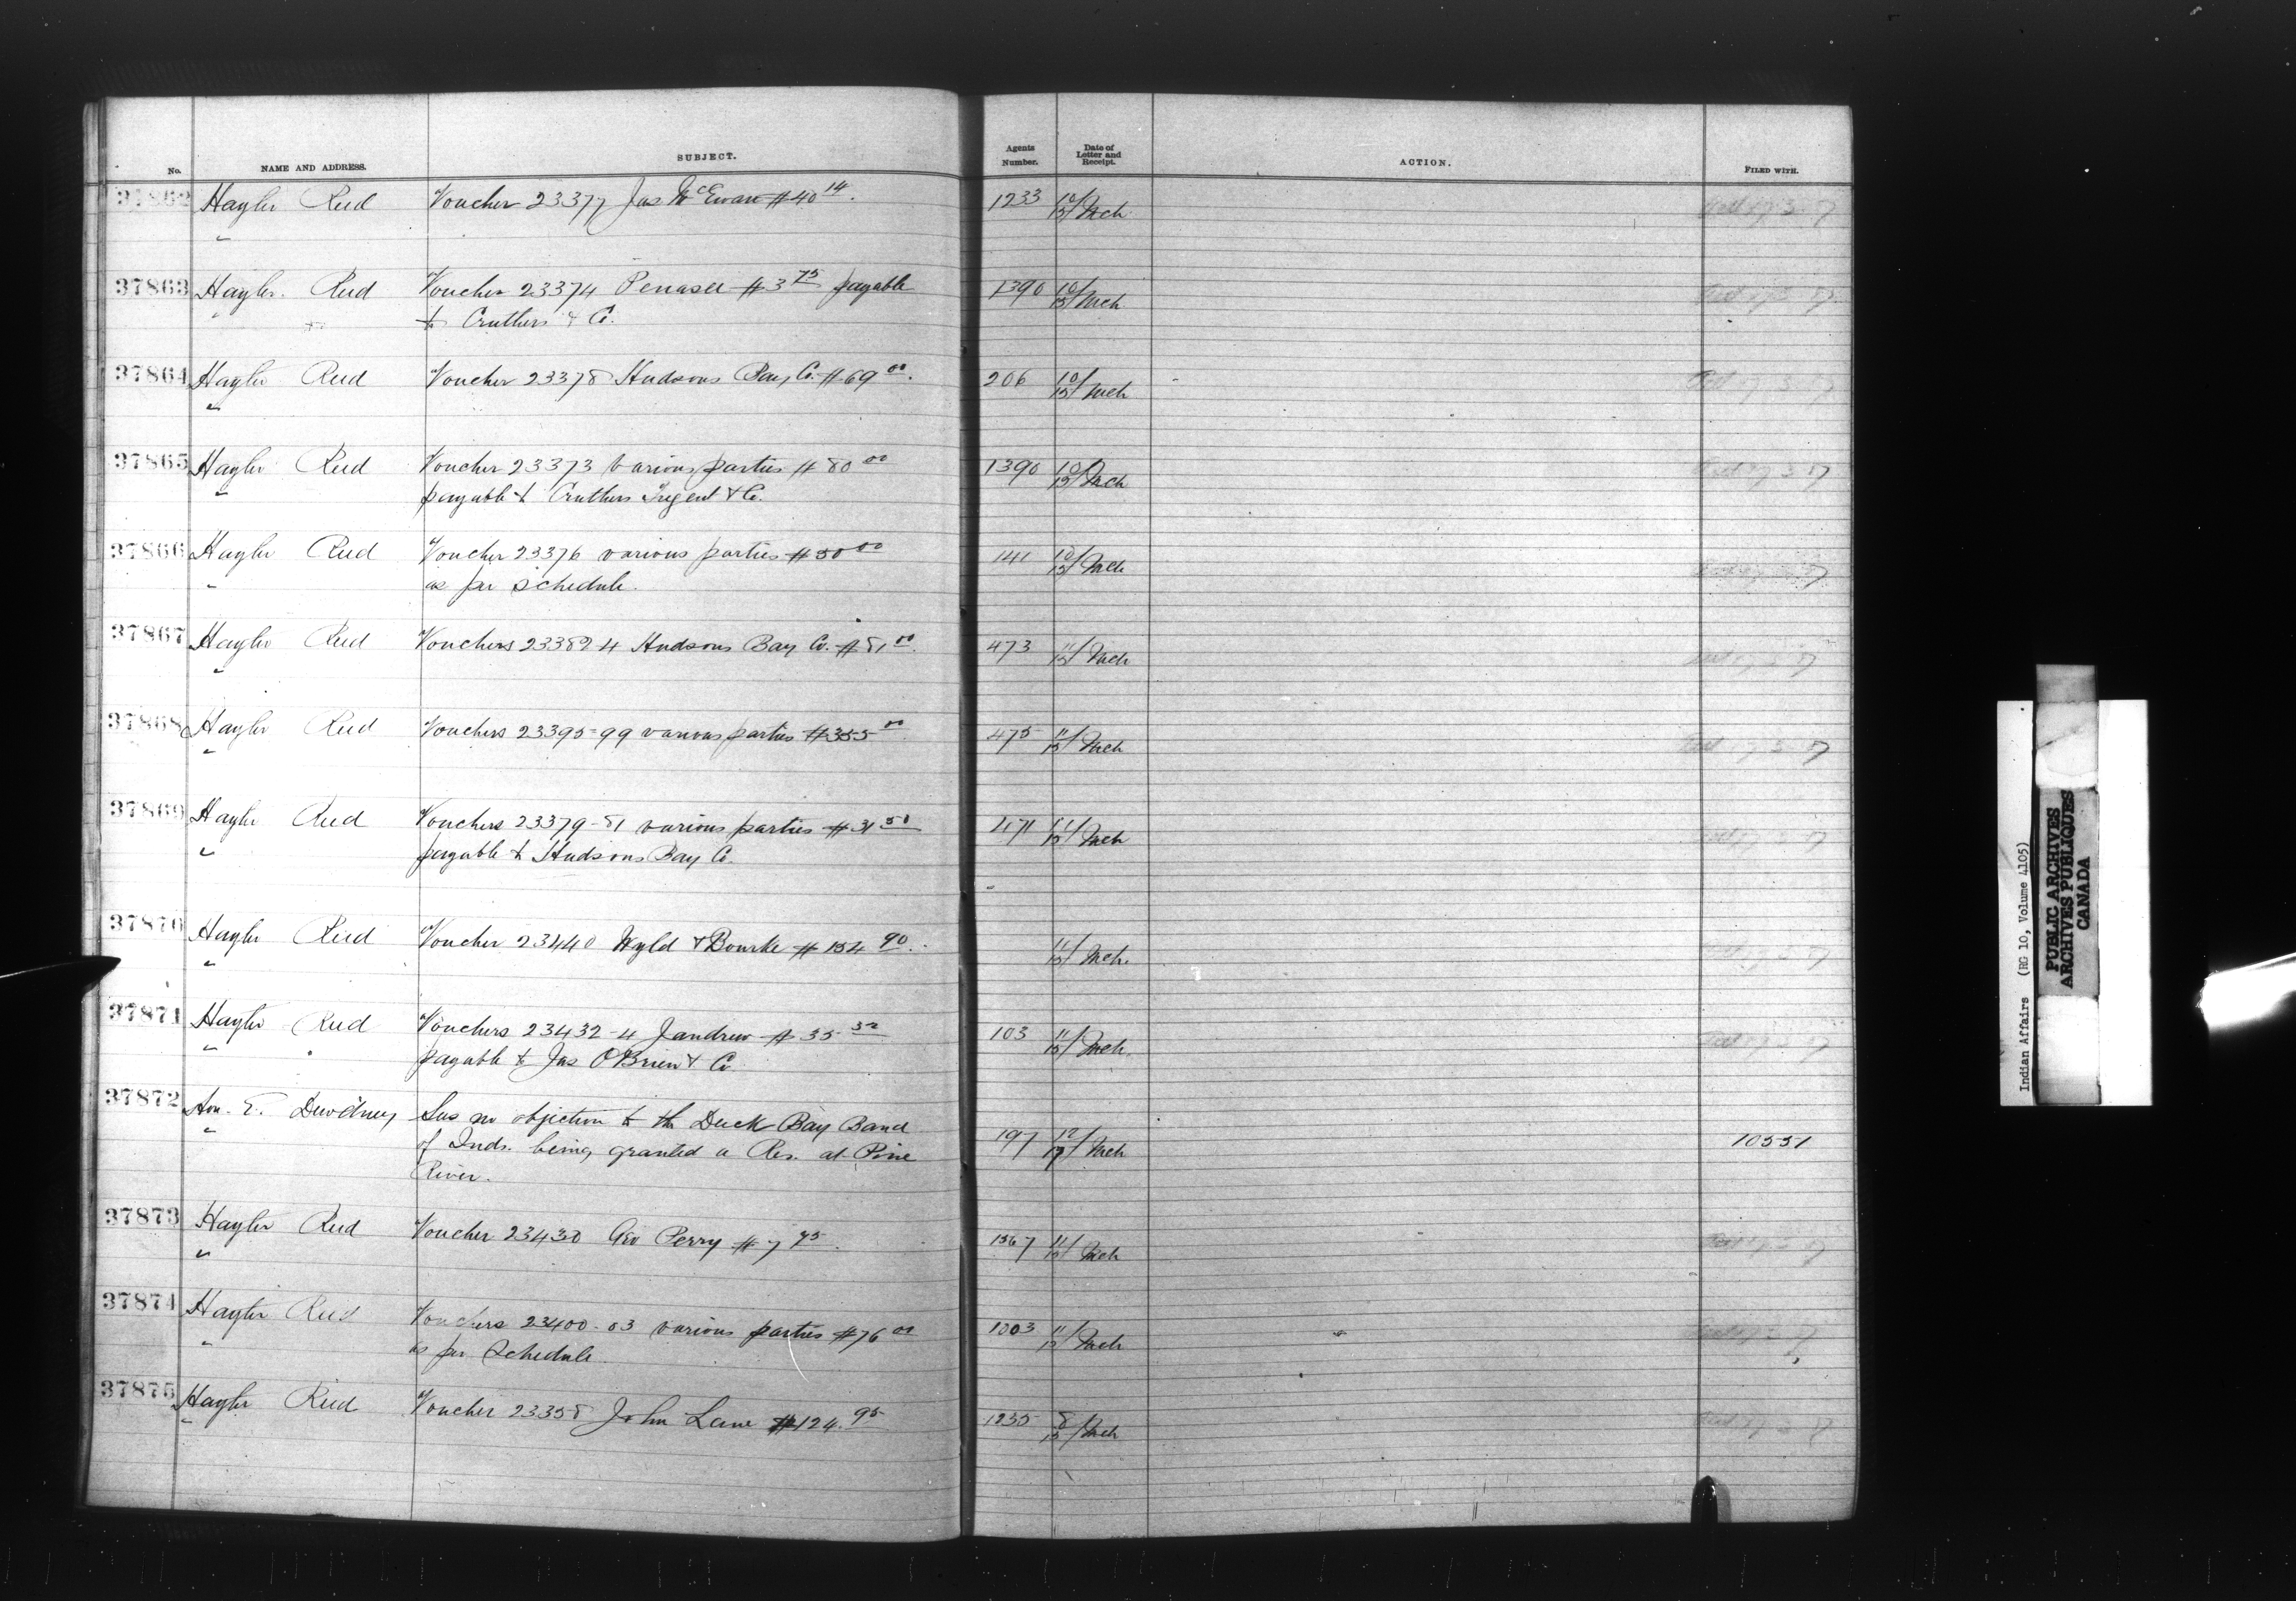 No. NAME AND ADDRESS. SUBJECT. Agents Number. Date of Letter and Receipt. ACTION. FILED WITH.
37862 Hayter Reed Voucher 23377 Jas McEwan $40 14. 1233 10/15/Mch
"
37863 Hayter Reed Voucher 23374 Penasee $3 75 payable 1390 10/15/Mch
" to Cruthers & Co.
37864 Hayter Reed Voucher 23378 Hudsons Bay Co. $69 00. 206 10/15/Mch
"
37865 Hayter Reed Voucher 23373 various parties $80 00 1390 10/15/Mch
" payable to Cruthers & Co.
37866 Hayter Reed Voucher 23376 various parties $50 00 141 10/15/Mch
" as per schedule.
37867 Hayter Reed Vouchers 23382-4 Hudsons Bay Co. $81 00. 473 11/15/Mch
"
37868 Hayter Reed Vouchers 23395-99 various parties $355 00 475 11/15/Mch
"
37869 Hayter Reed Vouchers 23379-81 various parties $31 50 471 11/15/Mch
" payable to Hudsons Bay Co.
37870 Hayter Reed Voucher 23440 Wyld & Bourke $154 90. 11/15/Mch.
"
37871 Hayter Reed Vouchers 23432-4 $35 32 103 11/15/Mch
" payable to Jas O'Brien & Co
37872 Hon. E. Dewdney Sees no objection to the Duck Bay Band
" of Inds. being granted a Res. at Pine 197 12/17/Mch 10551
River.
37873 Hayter Reed Voucher 23430 Geo Perry $7 95. 1567 11/15/Mch
"
37874 Hayter Reed Vouchers 23400-03 various parties $76 00 1003 11/15/Mch
" as per Schedule
37875 Hayter Reed Voucher 23358 John Lane $124.95 1235 8/15/Mch
"
Indian Affairs (RG 10, Volume 4105)
PUBLIC ARCHIVES
ARCHIVES PUBLIQUES
CANADA